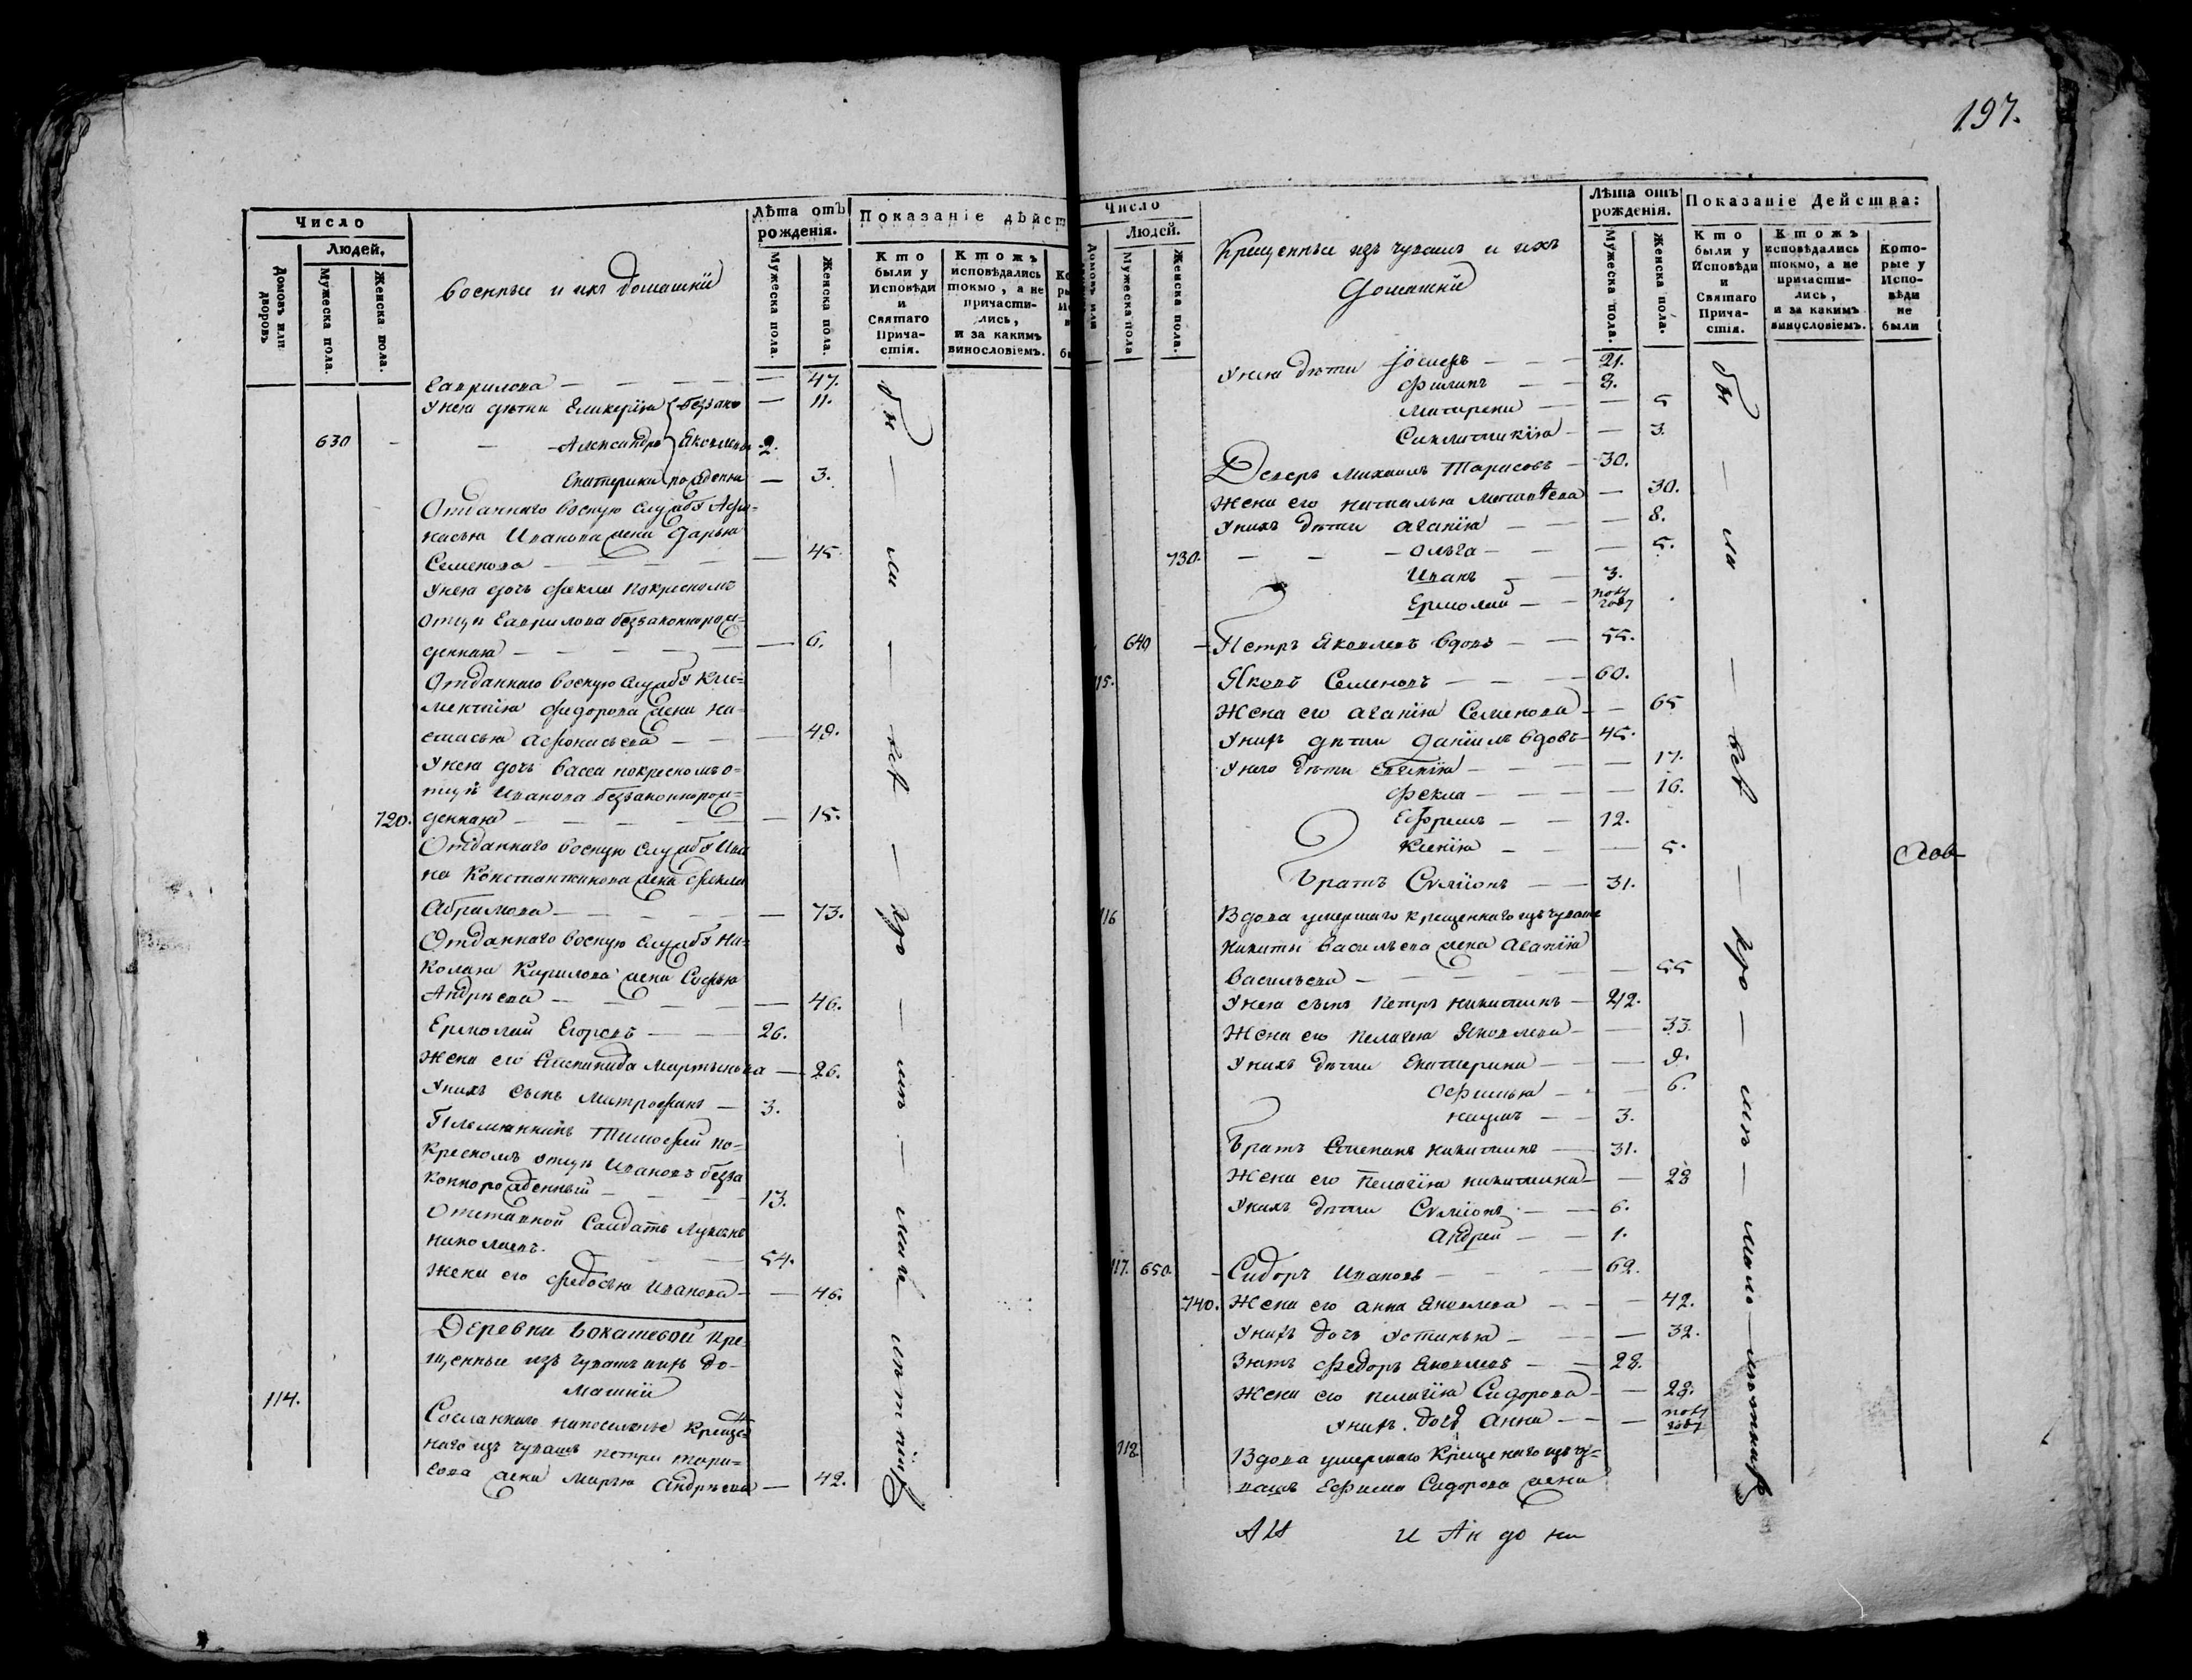 197.
Число
Людей,
Домовъ или дворовъ
Мужеска пола.
Женска пола.
Военные и ихъ домашнiи
Лѣта отъ рожденiя.
Мужеска пола.
Женска пола.
Показанiе дѣйст
Кто были у Исповѣди и Святаго Прича-стiя.
Ктожъ исповѣдались токмо, а не причасти-лись, и за какимъ винословiемъ.
Гаврилова — — — — 47.
У нея дѣтки Гликерiя беззако — 11.
630 - — Александръ Яковлевы 2.
Екатерина рожденны — 3.
Отданнаго воскую службу Афа-
насья Иванова жена Дарья
Семенова — 45.
У нея дочь Фекла покресному
отцу Гаврилова беззаконнорож-
денная — — — — 6.
Отданнаго воскую службу Кли-
ментiя Федорова жена На-
стасья Афонасьева — — 49.
У нея дочь Васса покресному о-
тцу Иванова беззаконнорож-
720. денная — — — — 15.
Отданнаго воскую службу Ива
на Константинова жена Фекла
Абрамова — — — — 73.
Отданнаго воскую службу Ни-
колая Кирилова жена Софья
Андрѣева — — — 46.
Ермолай Егоровъ — — 26.
Жена его Степанида Мартынова — 26.
У нихъ сынъ Митрофанъ — 3.
Племянникъ Тимофей по-
кресному отцу Ивановъ безза
коннорожденный — — 13.
Отставной Салдатъ Лукьянъ
Николаевъ. — — 54.
Жена его Федосья Иванова — 46.
Деревни Бокашевой Кре-
щенные изъ чувашъ и ихъ до-
машнiи
114.
Сосланнаго напоселенье Креще-
наго изъ чувашъ Петра Тара-
сова жена Марья Андрѣева — 42.
бы — ли — всѣ — кро — мѣ — мало — лѣтнихъ
Число
Людей.
Домовъ или
Мужеска пола
Женска пола.
Крещенные изъ чувашъ и ихъ
домашнiи
Лѣта отъ рожденiя.
Мужеска пола.
Женска пола.
Показанiе Действа:
Кто были у Исповѣди и Святаго Прича-стiя.
Ктожъ исповѣдались токмо, а не причасти-лись, и за какимъ винословiемъ.
Кото-рые у Испо-вѣди не были
У нея дѣти Iосифъ — — 21.
Филипъ — — 8.
Матрена — — 5
Синклитикiя — — 3.
Деверь Михаилъ Тарасовъ — 30.
Жена его Наталья Матвѣева — 30.
У нихъ дѣти Агапiя — — 8.
730. — — — Ольга — — 5.
Иванъ — — 3.
Ермолай — — полу году
640 — Петръ Яковлевъ вдовъ — — 55.
115. Яковъ Семеновъ — — — 60.
Жена его Агапiя Семенова — — 65
У нихъ дѣти Данiилъ вдовъ — 45.
У него дѣти Евгенiя — — — 17.
Фекла — — — — 16.
Ефремъ — — 12.
Ксенiя — — — 5.
Братъ Сумiонъ — — 31.
116 Вдова умершаго крещеннаго изъ чувашъ
Никиты Васильева жена Агапiя
Васильева — — — — 55
У нея сынъ Петръ Никитинъ — 42.
Жена его Пелагея Яковлева — — 33.
У нихъ дѣти Екатерина — — 9.
Офимья — — 6.
Наумъ — — 3.
Братъ Степанъ Никитинъ — 31.
Жена его Пелагiя Никитина — — 28
У нихъ дѣти Сумiонъ — — 6.
Андрей — — 1.
117. 650. — Сидоръ Ивановъ — — — 62.
740. Жена его Анна Яковлева — — 42.
У нихъ дочь Устинья — — — 32.
Зять Федоръ Яковлевъ — — 28.
Жена его Пелагiя Сидорова — — 28.
У нихъ дочь Анна — — — полу году
118. Вдова умершаго Крещенаго изъ чу-
вашъ Ефима Сидорова жена
бы — ли — всѣ — кро — мѣ — мало — лѣтнихъ